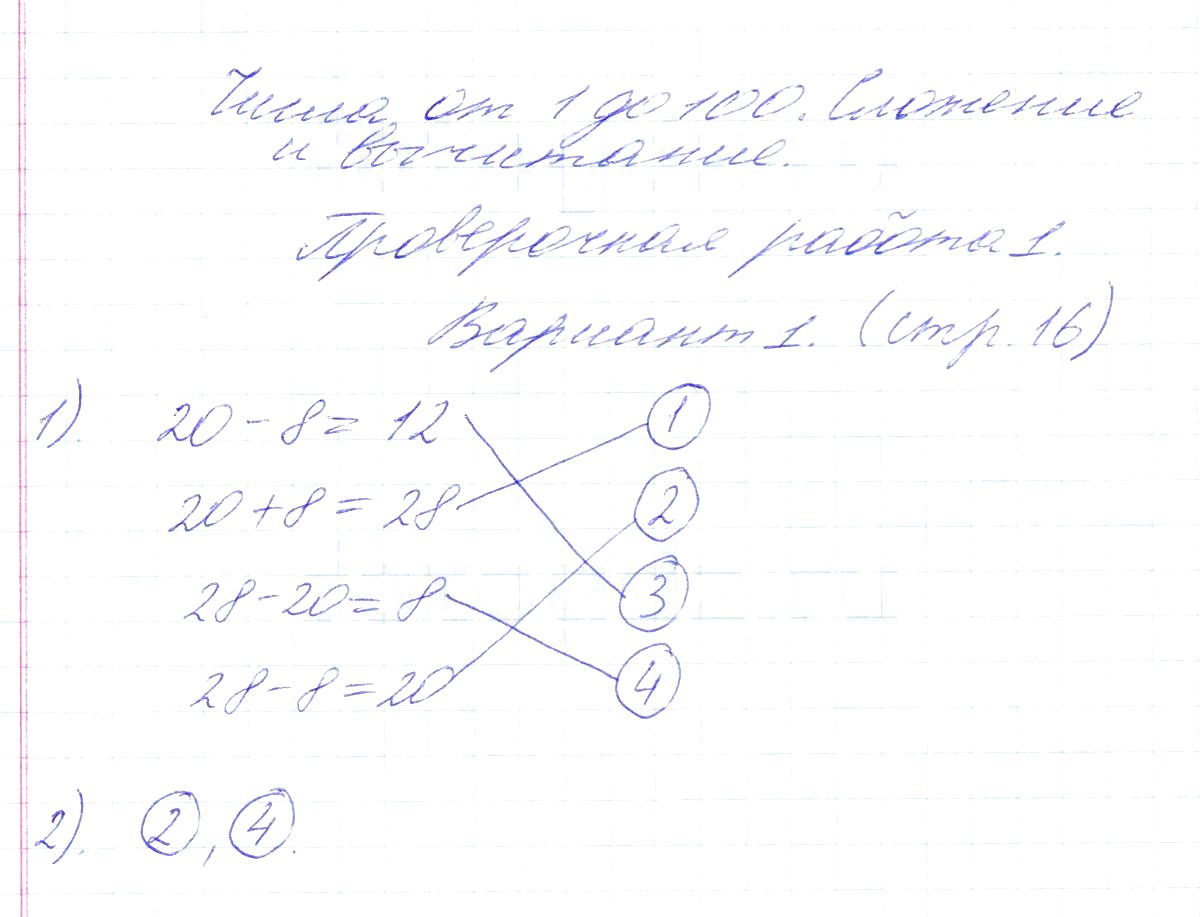 Числа от 1 до 100. Сложение
и вычитание.
Проверочная работа 1.
Вариант 1. (стр. 16)
1). 20 - 8 = 12 1
20 + 8 = 28 2
28 - 20 = 8 3
28 - 8 = 20 4
2). 2, 4.